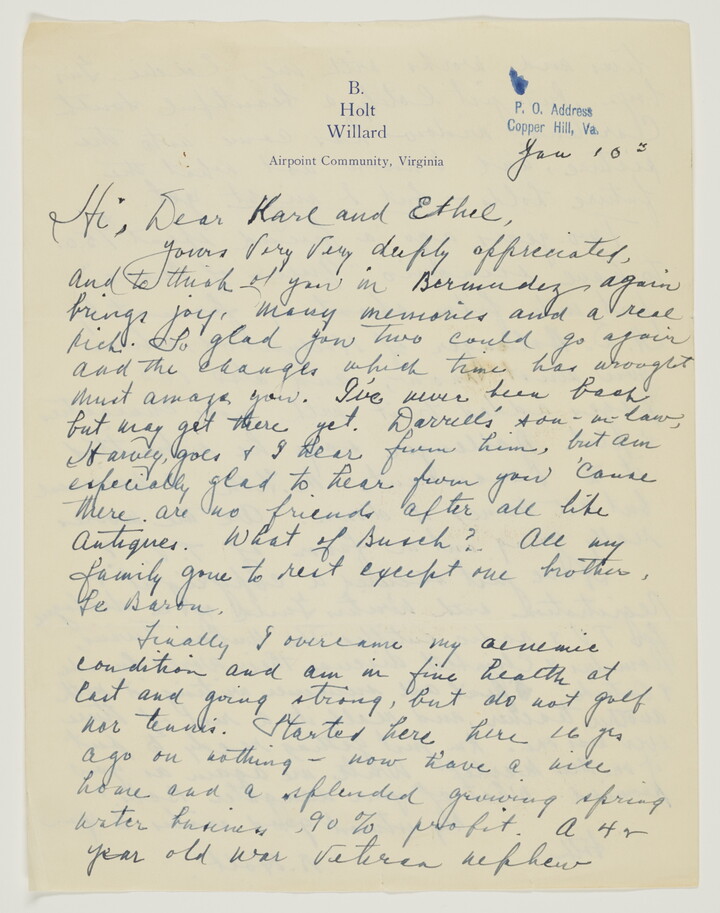 B.
Holt
Willard
Airpoint Community, Virginia
P. O. Address
Copper Hill, Va.
Jan 10
Hi, Dear Karl and Ethel,
Yours Very Very deeply appreciated,
and to think of you in Bermudez again
brings joy, many memories and a real
kick. So glad you two could go again
and the changes which time has wrought
must amaze you. I've never been back
but may get there yet. Darrell's son-in-law,
Harvey, goes & I hear from him, but am
especially glad to hear from you 'cause
there are no friends after all like
Antiques. What of Busch? All my
family gone to rest except one brother,
Le Baron.
Finally I overcame my aenemic
condition and am in fine health at
last and going strong, but do not golf
nor tennis. Started here here 16 yrs
ago on nothing - now have a nice
home and a splended growing spring
water business, 90% profit. A
year old war Veteran nephew